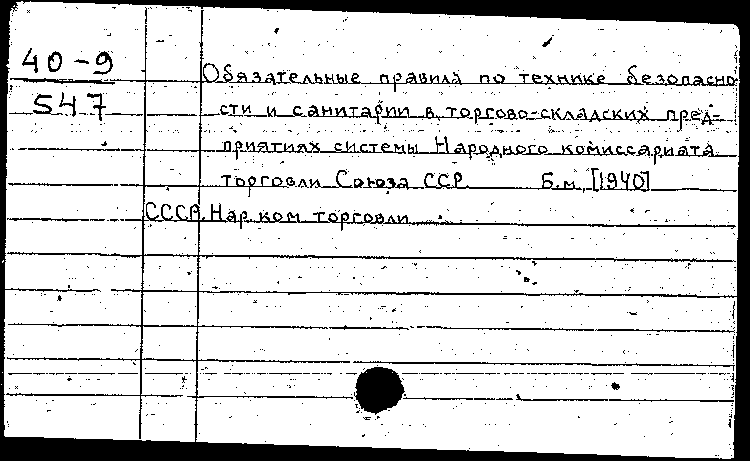 40-9
547
Обязательные правила по технике безопасно
сти и санитарии в торгово-складских пред-
приятиях системы Народного комиссариата
торговли Союза ССР. Б.м., [1940]
СССР. Нар. ком. торговли